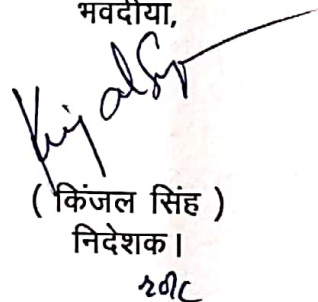 भवदीया,
( किंजल सिंह )
निदेशक।